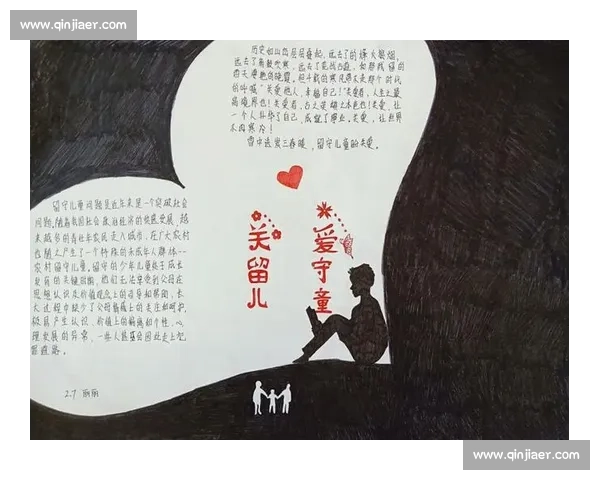 www.qinjiaer.com
历史如山峦层层叠起，远去了的烽火狼烟，
远去了，远去了荒城古道，如那残留的
西天凄艳的晚霞。但千载的寒风带不走那个时代
的呼喊"关爱他人，幸福自己！"关爱者，人生之最
高境界也！关爱者，古之英雄之本色也！关爱，让
一个人升华了自己，成就了业。关爱，让世界
不再寒冷！
雪中送炭三春暖，留守儿童盼关爱。
关爱
留守
儿童
留守儿童问题是近年来是一个突破社会
问题。随着我国社会政治经济的快速发展，越
来越多的青壮年农民走入城市，在广大农村
也随之产生了一个特殊的未成年人群体——
农村留守儿童。留守的少年儿童处于成长
发育的关键时期，他们无法享受到父母在
思想认识及价值观念上的引导和帮助，长
大过程中缺少了父母情感上的关注和呵护，
极易产生认识、价值上的偏离和个性、心
理发展的异常，一些人甚至会因此走上犯
罪道路。
2.7 丽丽
www.qinjiaer.com